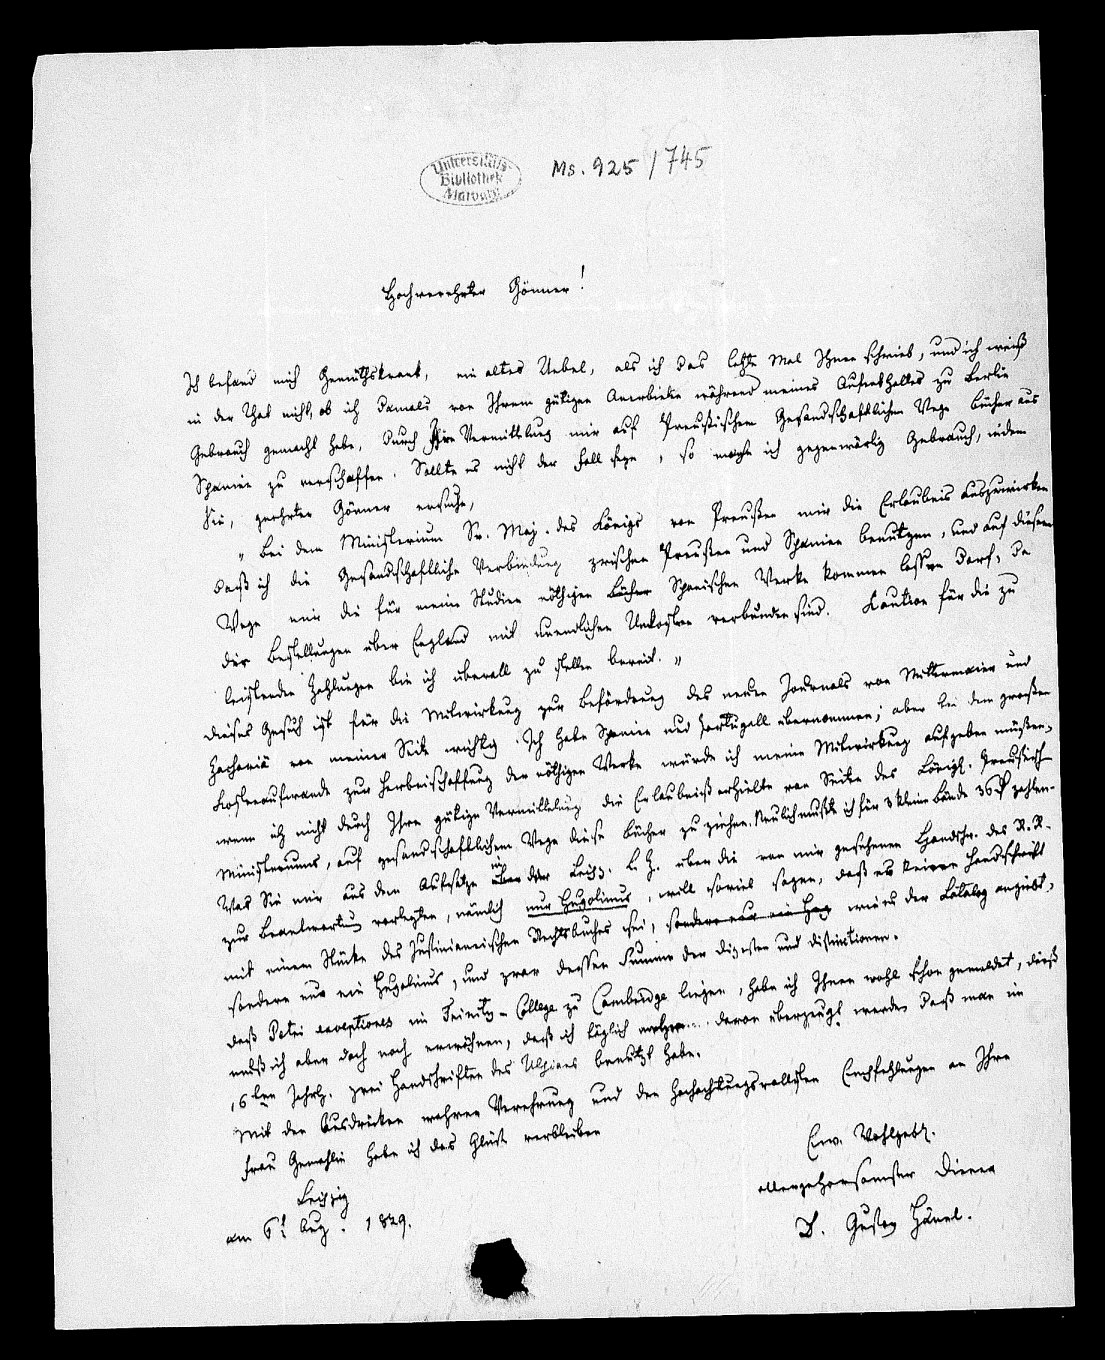 Universitäts-
Bibliothek
Marburg
Ms. 925 / 745
Hochverehrter Gönner!
Ich befand mich Gemüthskrank, ein altes Uebel, als ich das letzte Mal Ihnen schrieb, und ich weiß
in der That nicht, ob ich damals von Ihrem gütigen Anerbieten während meines Aufenthaltes zu Berlin
Gebrauch gemacht habe, durch Ihre Vermittlung mir auf Preußischem Gesandschaftlichen Wege Bücher aus
Spanien zu verschaffen. Sollte es nicht der Fall seyn, so mache ich gegenwärtig Gebrauch, indem
Sie, geehrter Gönner ersuche,
„ Bei dem Ministerium Sr. Maj. des Königs von Preußen mir die Erlaubnis auszuwirken
daß ich die Gesandschaftliche Verbindung zwischen Preußen und Spanien benutzen, und auf diesem
Wege mir die für meine Studien nöthigen Bücher Spanischen Werke kommen lassen darf, da
die Bestellungen über England mit unendlichen Unkosten verbunden sind. Caution für die zu
leistenden Zahlungen bin ich überall zu stellen bereit. „
Dieses Gesuch ist für die Mitwirkung zur Beförderung des neuen Journals von Mittermaier und
Zachariä von meiner Seite wichtig. Ich habe Spanien und Portugall übernommen; aber bei dem großen
Kostenaufwande zur Herbeischaffung der nöthigen Werke würde ich meine Mitwirkung aufgeben müßen,
wenn ich nicht durch Ihre gütige Vermittelung die Erlaubniß erhielte von Seiten des Königl. Preußisch
Ministeriums, auf gesandschaftlichem Wege diese Bücher zu ziehen. Neulich mußte ich für 3 kleine Bände 36 zahlen.
Was Sie mir aus dem Aufsatze in der Leipz. L. Z. über die von mir gesehenen Handschr. des R. R.
zur Beantwortung vorlegten, nämlich nur Hugolinus, will soviel sagen, daß es keine Handschrift
mit einem Stücke des Justinianeischen Rechtsbuches sei, sondern nur ein Hug wie es der Catalog angibt,
sondern nur ein Hugolinus, und zwar dessen Summe der Digesten und distinctionen.
daß Petri exceptiones im Trinity-College zu Cambridge liegen, habe ich Ihnen wohl schon gemeldet, dieß
muß ich aber doch noch erwähnen, daß ich täglich mehr davon überzeugt werde, daß man im
16ten Jahrh. zwei Handschriften des Ulpians benutzt habe.
Mit den Ausdrücken wahrer Verehrung und den Hochachtungsvollsten Empfehlungen an Ihre
Frau Gemahlin habe ich das Glück verbleiben
Ew. Wohlgeb.
allergehorsamster Diener
D. Gustav Hänel.
Leipzig
am 6t Aug. 1829.